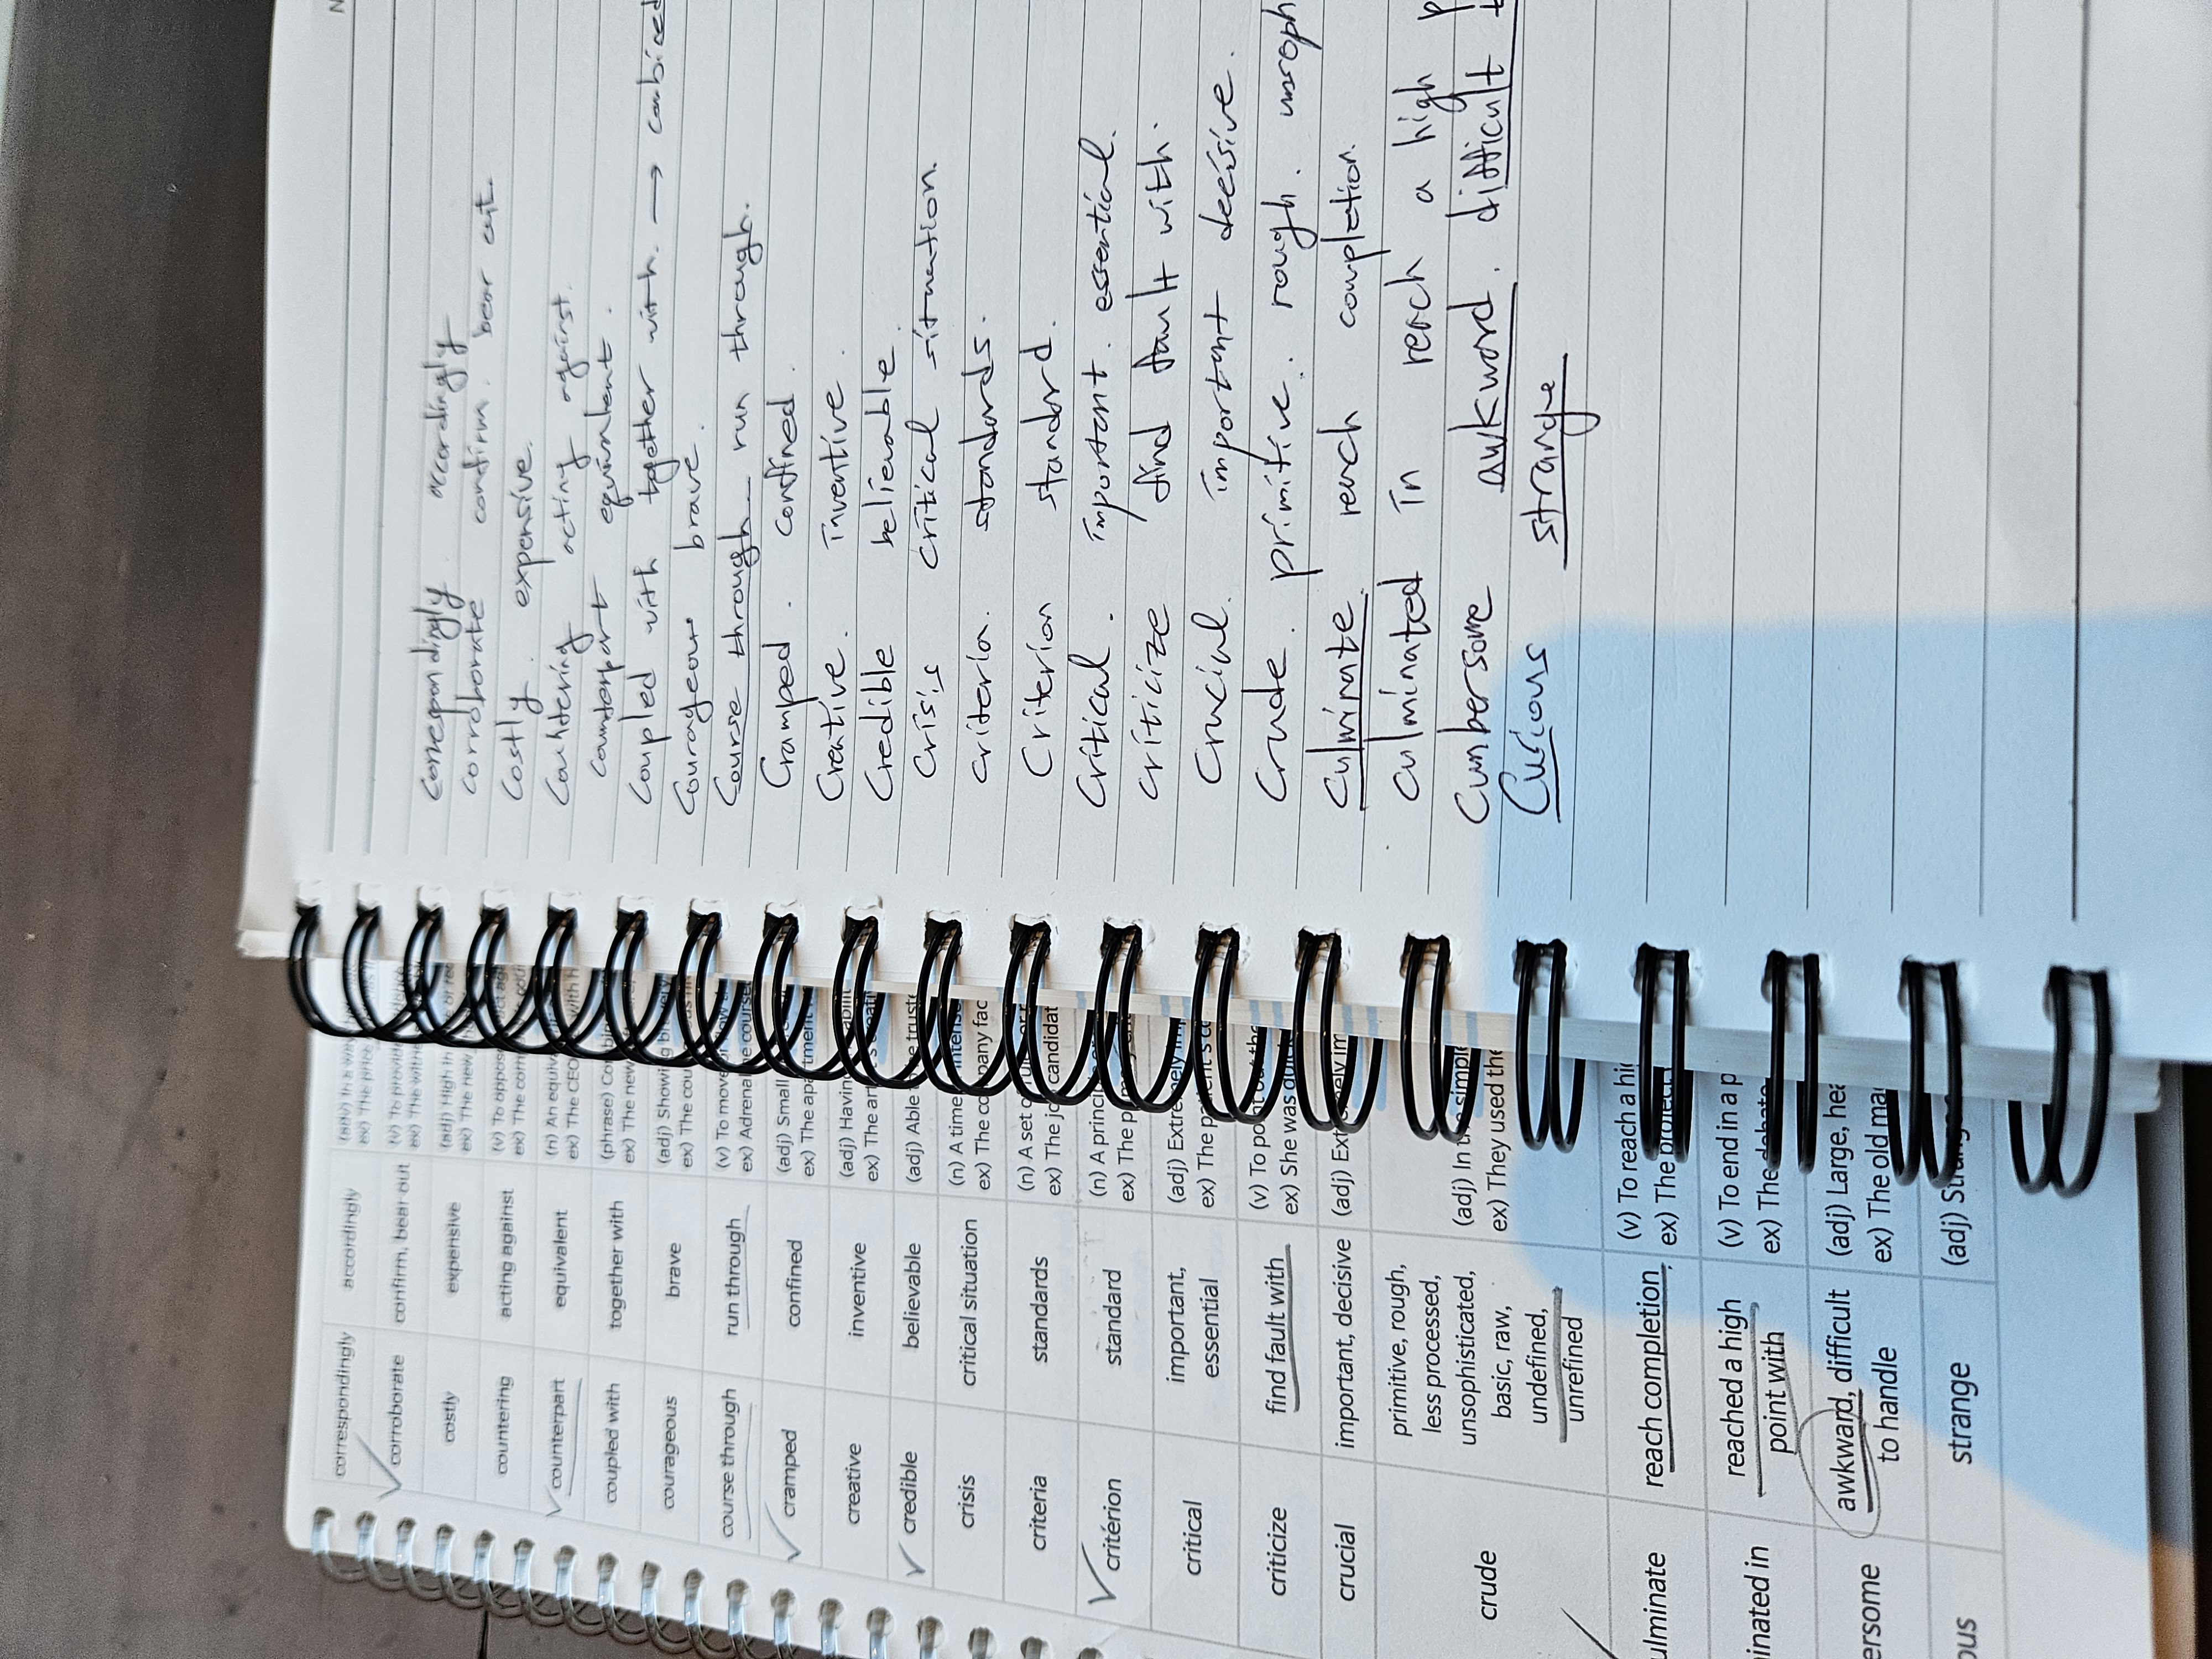 correspondingly accordingly (adv) In a way
ex) The price
corroborate confirm, bear out (v) To provide
ex) The
costly expensive (adj) High in
ex) The new
countering acting against (v) To oppose
ex) The com
counterpart equivalent (n) An equiv
ex) The CEO with h
coupled with together with (phrase) Co
ex) The new
courageous brave (adj) Showing
ex) The cou
course through run through (v) To move flow
ex) Adrenal course
cramped confined (adj) Small
ex) The apartment
creative inventive (adj) Having abilit
ex) The ar
credible believable (adj) Able trust
crisis critical situation (n) A time intense
ex) The company fac
criteria standards (n) A set
ex) The jo candidat
criterion standard (n) A princi
ex) The p
critical important, essential (adj) Extremely imp
ex) The
criticize find fault with (v) To po out the
ex) She was
crucial important, decisive (adj) Ex ely im
crude primitive, rough,
less processed,
unsophisticated,
basic, raw,
undefined,
unrefined
(adj) In simple
ex) They used the
ulminate reach completion, (v) To reach a hi
ex) The project
inated in reached a high
point with
(v) To end in a p
ex) The debate
ersome awkward, difficult
to handle
(adj) Large, hea
ex) The old ma
ous strange (adj) Strange
N
Correspondingly. accordingly
corroborate confirm. bear out.
Costly. expensive.
Countering acting against.
Counterpart equivalent.
Coupled with together with. → combined
Courageous brave.
Course through run through.
Cramped. confined.
Creative. inventive.
Credible believable.
Crisis critical situation.
Criteria. standards.
Criterion standard.
Critical. important. essential.
criticize find fault with.
Crucial. important decisive.
Crude. primitive. rough. unsoph
Culminate. reach completion.
Culminated in reach a high p
Cumbersome awkword. difficult t
Curious strange